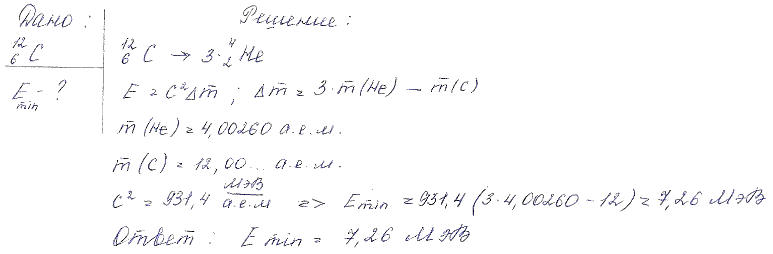 Дано: Решение:
¹²₆C ¹²₆C → 3·⁴₂He
E min - ? E = c²Δm̄ ; Δm̄ = 3·m̄(He) – m̄(C)
m̄(He) = 4,00260 а.е.м.
m̄(C) = 12,00... а.е.м.
c² = 931,4 МэВ/а.е.м => E min = 931,4 (3·4,00260 - 12) = 7,26 МэВ
Ответ: E min = 7,26 МэВ